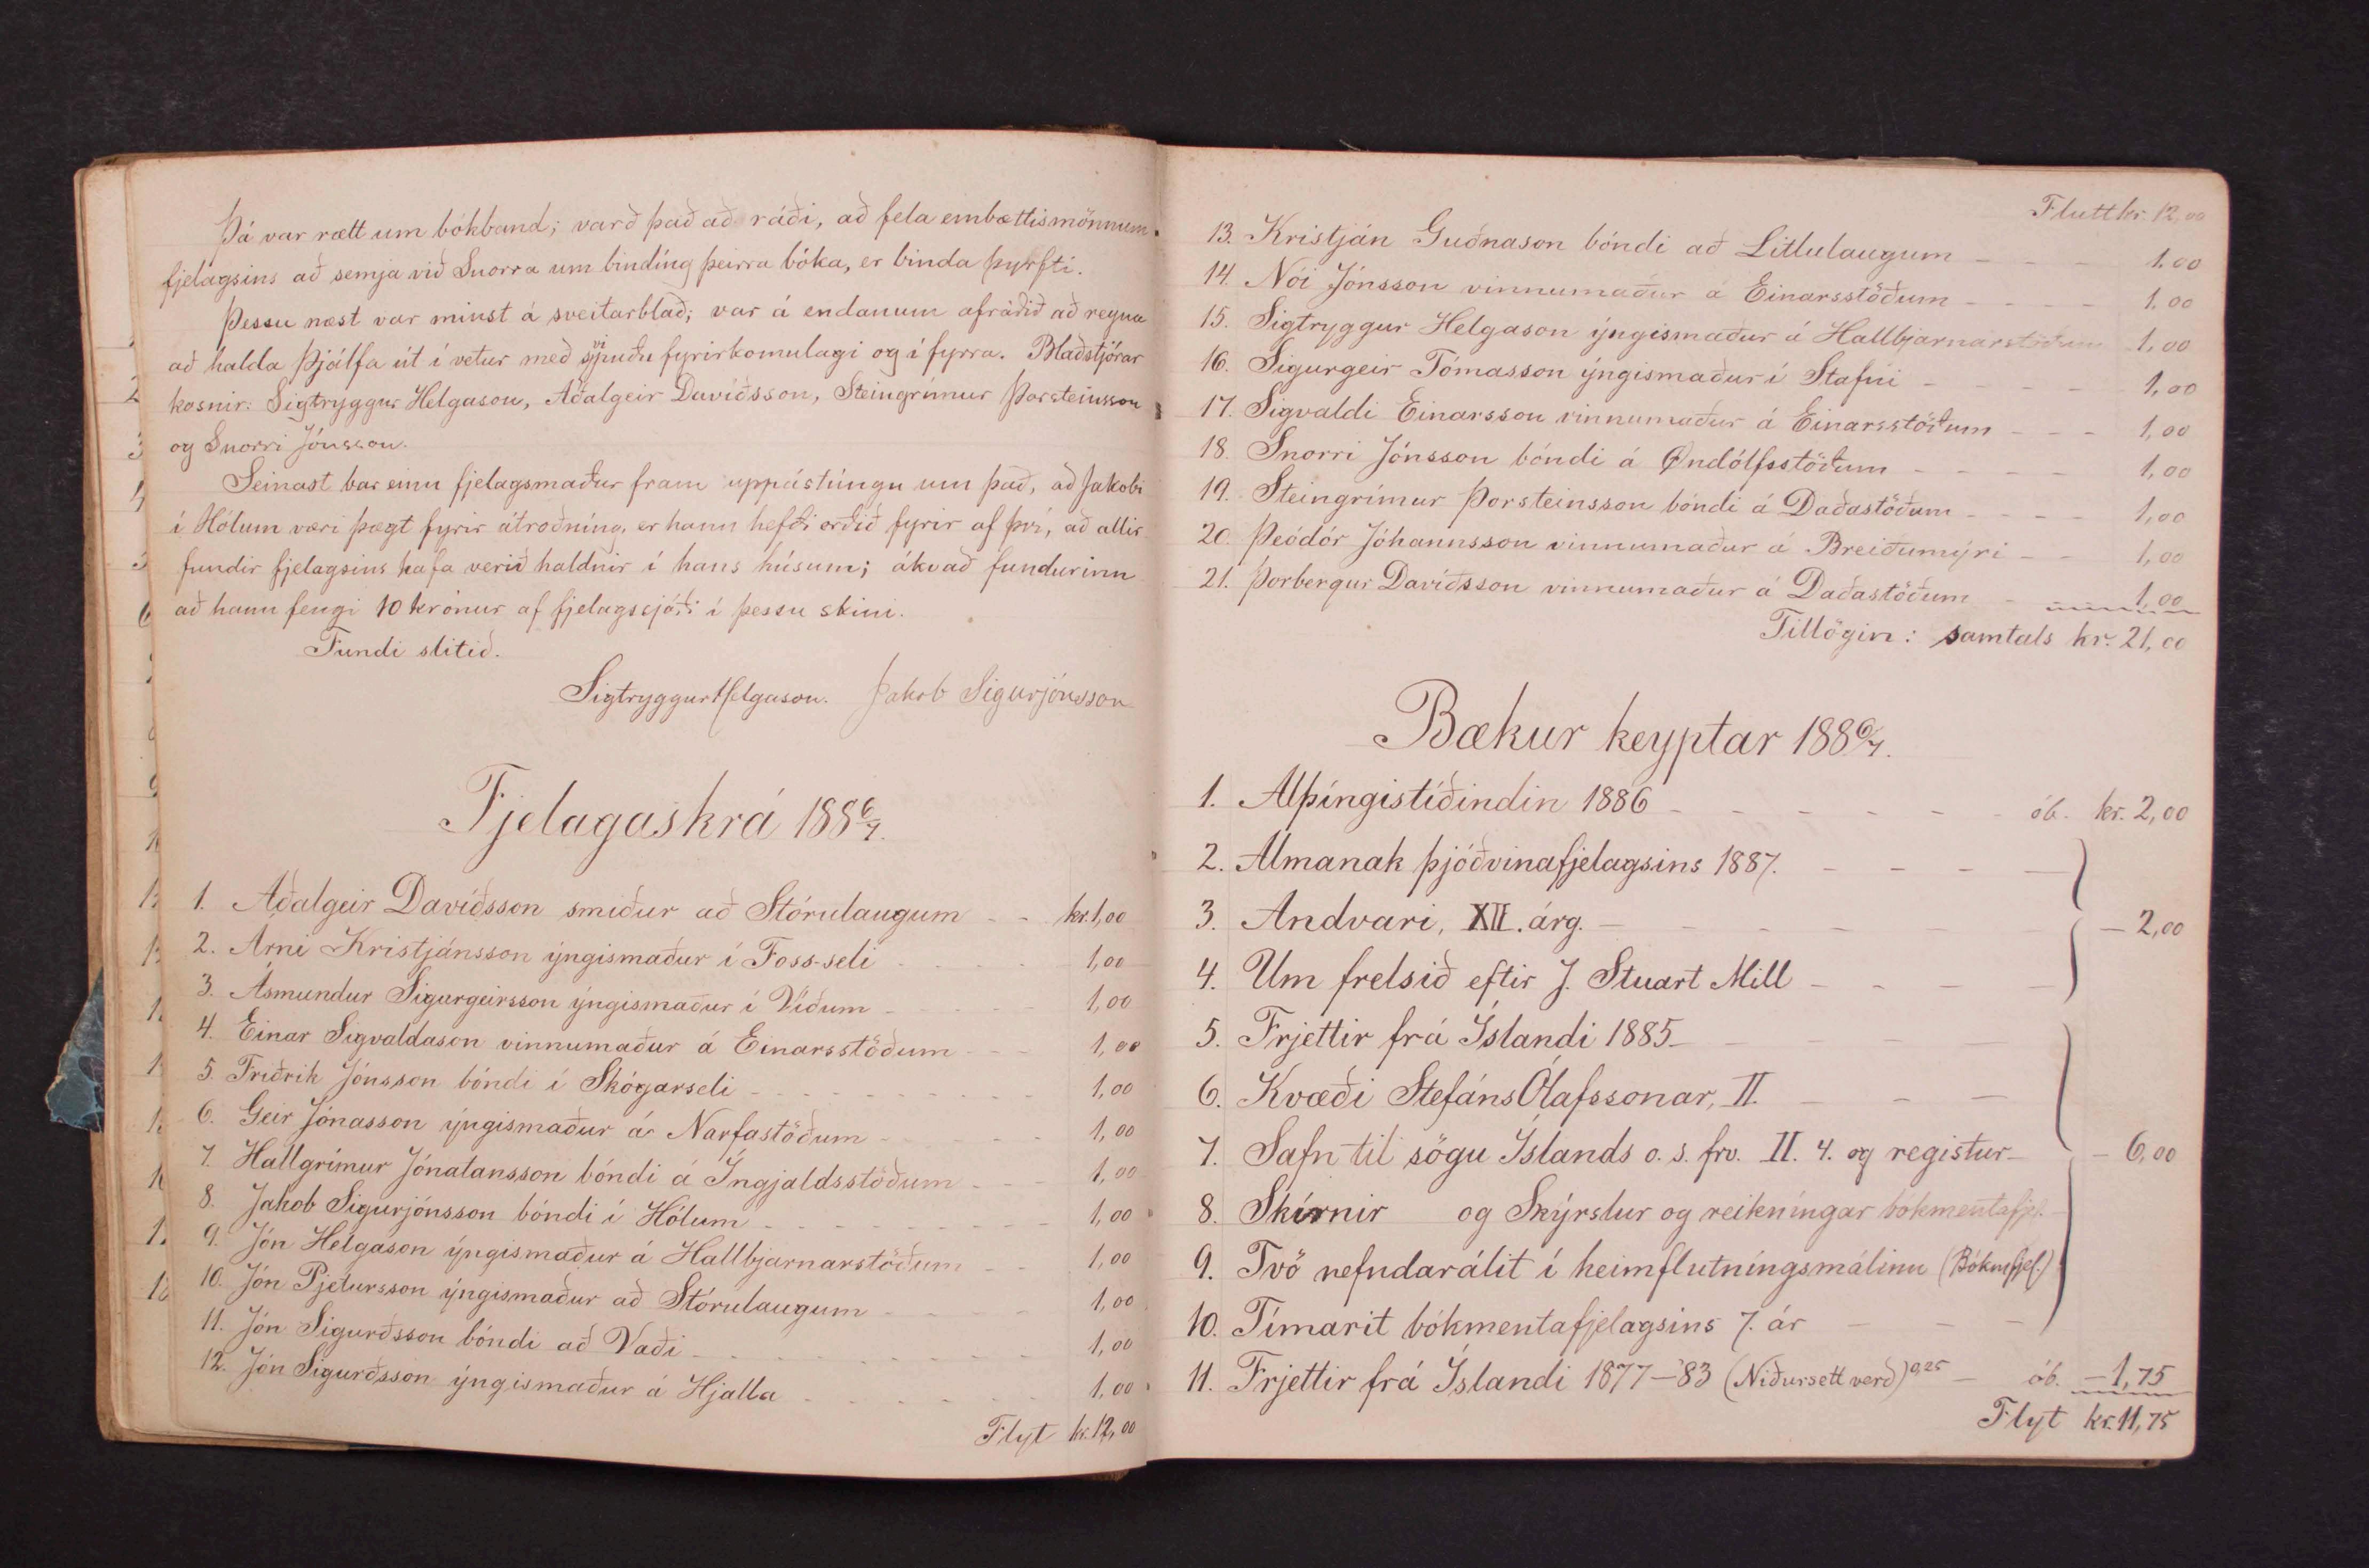 Þá var rætt um bókband; varð það að ráði, að fela embættismönnum
fjelagsins að semja við Snorra um bindíng þeirra bóka, er binda þyrfti.
Þessu næst var minst á sveitarblað; var á endanum afráðið að reyna
að halda Þjálfa út í vetur með svipuðu fyrirkomulagi og í fyrra. Blaðstjórar
kosnir: Sigtryggur Helgason, Aðalgeir Davíðsson, Steingrímur Þorsteinsson
og Snorri Jónsson.
Seinast bar einn fjelagsmaður fram uppástúngu um það, að Jakobi
í Hólum væri þægt fyrir átroðníng, er hann hefði orðið fyrir af því, að allir
fundir fjelagsins hafa verið haldnir í hans húsum; ákvað fundurinn
að hann fengi 10 krónur af fjelagssjóði í þessu skini.
Fundi slitið.
Sigtryggur Helgason. Jakob Sigurjónsson
Fjelagaskrá 1886/7.
1. Aðalgeir Davíðsson smiður að Stórulaugum - - kr. 1,00
2. Árni Kristjánsson ýngismaður í Foss-seli - - - - 1,00
3. Ásmundur Sigurgeirsson ýngismaður í Víðum - - - - 1,00
4. Einar Sigvaldason vinnumaður á Einarsstöðum - - - 1,00
5. Friðrik Jónsson bóndi í Skógarseli - - - - - - - 1,00
6. Geir Jónasson ýngismaður á Narfastöðum - - - - 1,00
7. Hallgrímur Jónatansson bóndi á Íngjaldsstöðum - - - 1,00
8. Jakob Sigurjónsson bóndi í Hólum - - - - - - - 1,00
9. Jón Helgason ýngismaður á Hallbjarnarstöðum - - 1,00
10. Jón Pjetursson ýngismaður að Stórulaugum - - - - 1,00
11. Jón Sigurðsson bóndi að Vaði - - - - - - - - 1,00
12. Jón Sigurðsson ýngismaður á Hjalla - - - - - - 1,00
Flyt kr. 12,00
Flutt kr. 12,00
13. Kristján Guðnason bóndi að Litlulaugum - - - - 1,00
14. Nói Jónsson vinnumaður á Einarsstöðum - - - - - 1,00
15. Sigtryggur Helgason ýngismaður á Hallbjarnarstöðum 1,00
16. Sigurgeir Tómasson ýngismaður í Stafni - - - - - 1,00
17. Sigvaldi Einarsson vinnumaður á Einarsstöðum - - - 1,00
18. Snorri Jónsson bóndi á Øndólfsstöðum - - - - - 1,00
19. Steingrímur Þorsteinsson bóndi á Daðastöðum - - - - 1,00
20. Þeódór Jóhannsson vinnumaður á Breiðumýri - - 1,00
21. Þorbergur Davíðsson vinnumaður á Daðastöðum - 1,00
Tillögin: samtals kr. 21,00
Bækur keyptar 1886/7.
1. Alþíngistíðindin 1886 - - - - - - - ób. kr. 2,00
2. Almanak þjóðvinafjelagsins 1887. - - - -
3. Andvari, XII. árg. - - - - - - - - 2,00
4. Um frelsið eftir J. Stuart Mill - - - -
5. Frjettir frá Íslandi 1885 - - - - -
6. Kvæði Stefáns Ólafssonar, II. - - -
7. Safn til sögu Íslands o. s. frv. II. 4. og registur - - 6,00
8. Skírnir og Skýrslur og reikníngar bókmentafjel. -
9. Tvö nefndarálit í heimflutníngsmálinu (Bókmfjel.)
10. Tímarit bókmentafjelagsins 7. ár - - -
11. Frjettir frá Íslandi 1877-'83 (Niðursett verð) 0,25 - ób. - 1,75
Flyt kr. 11,75